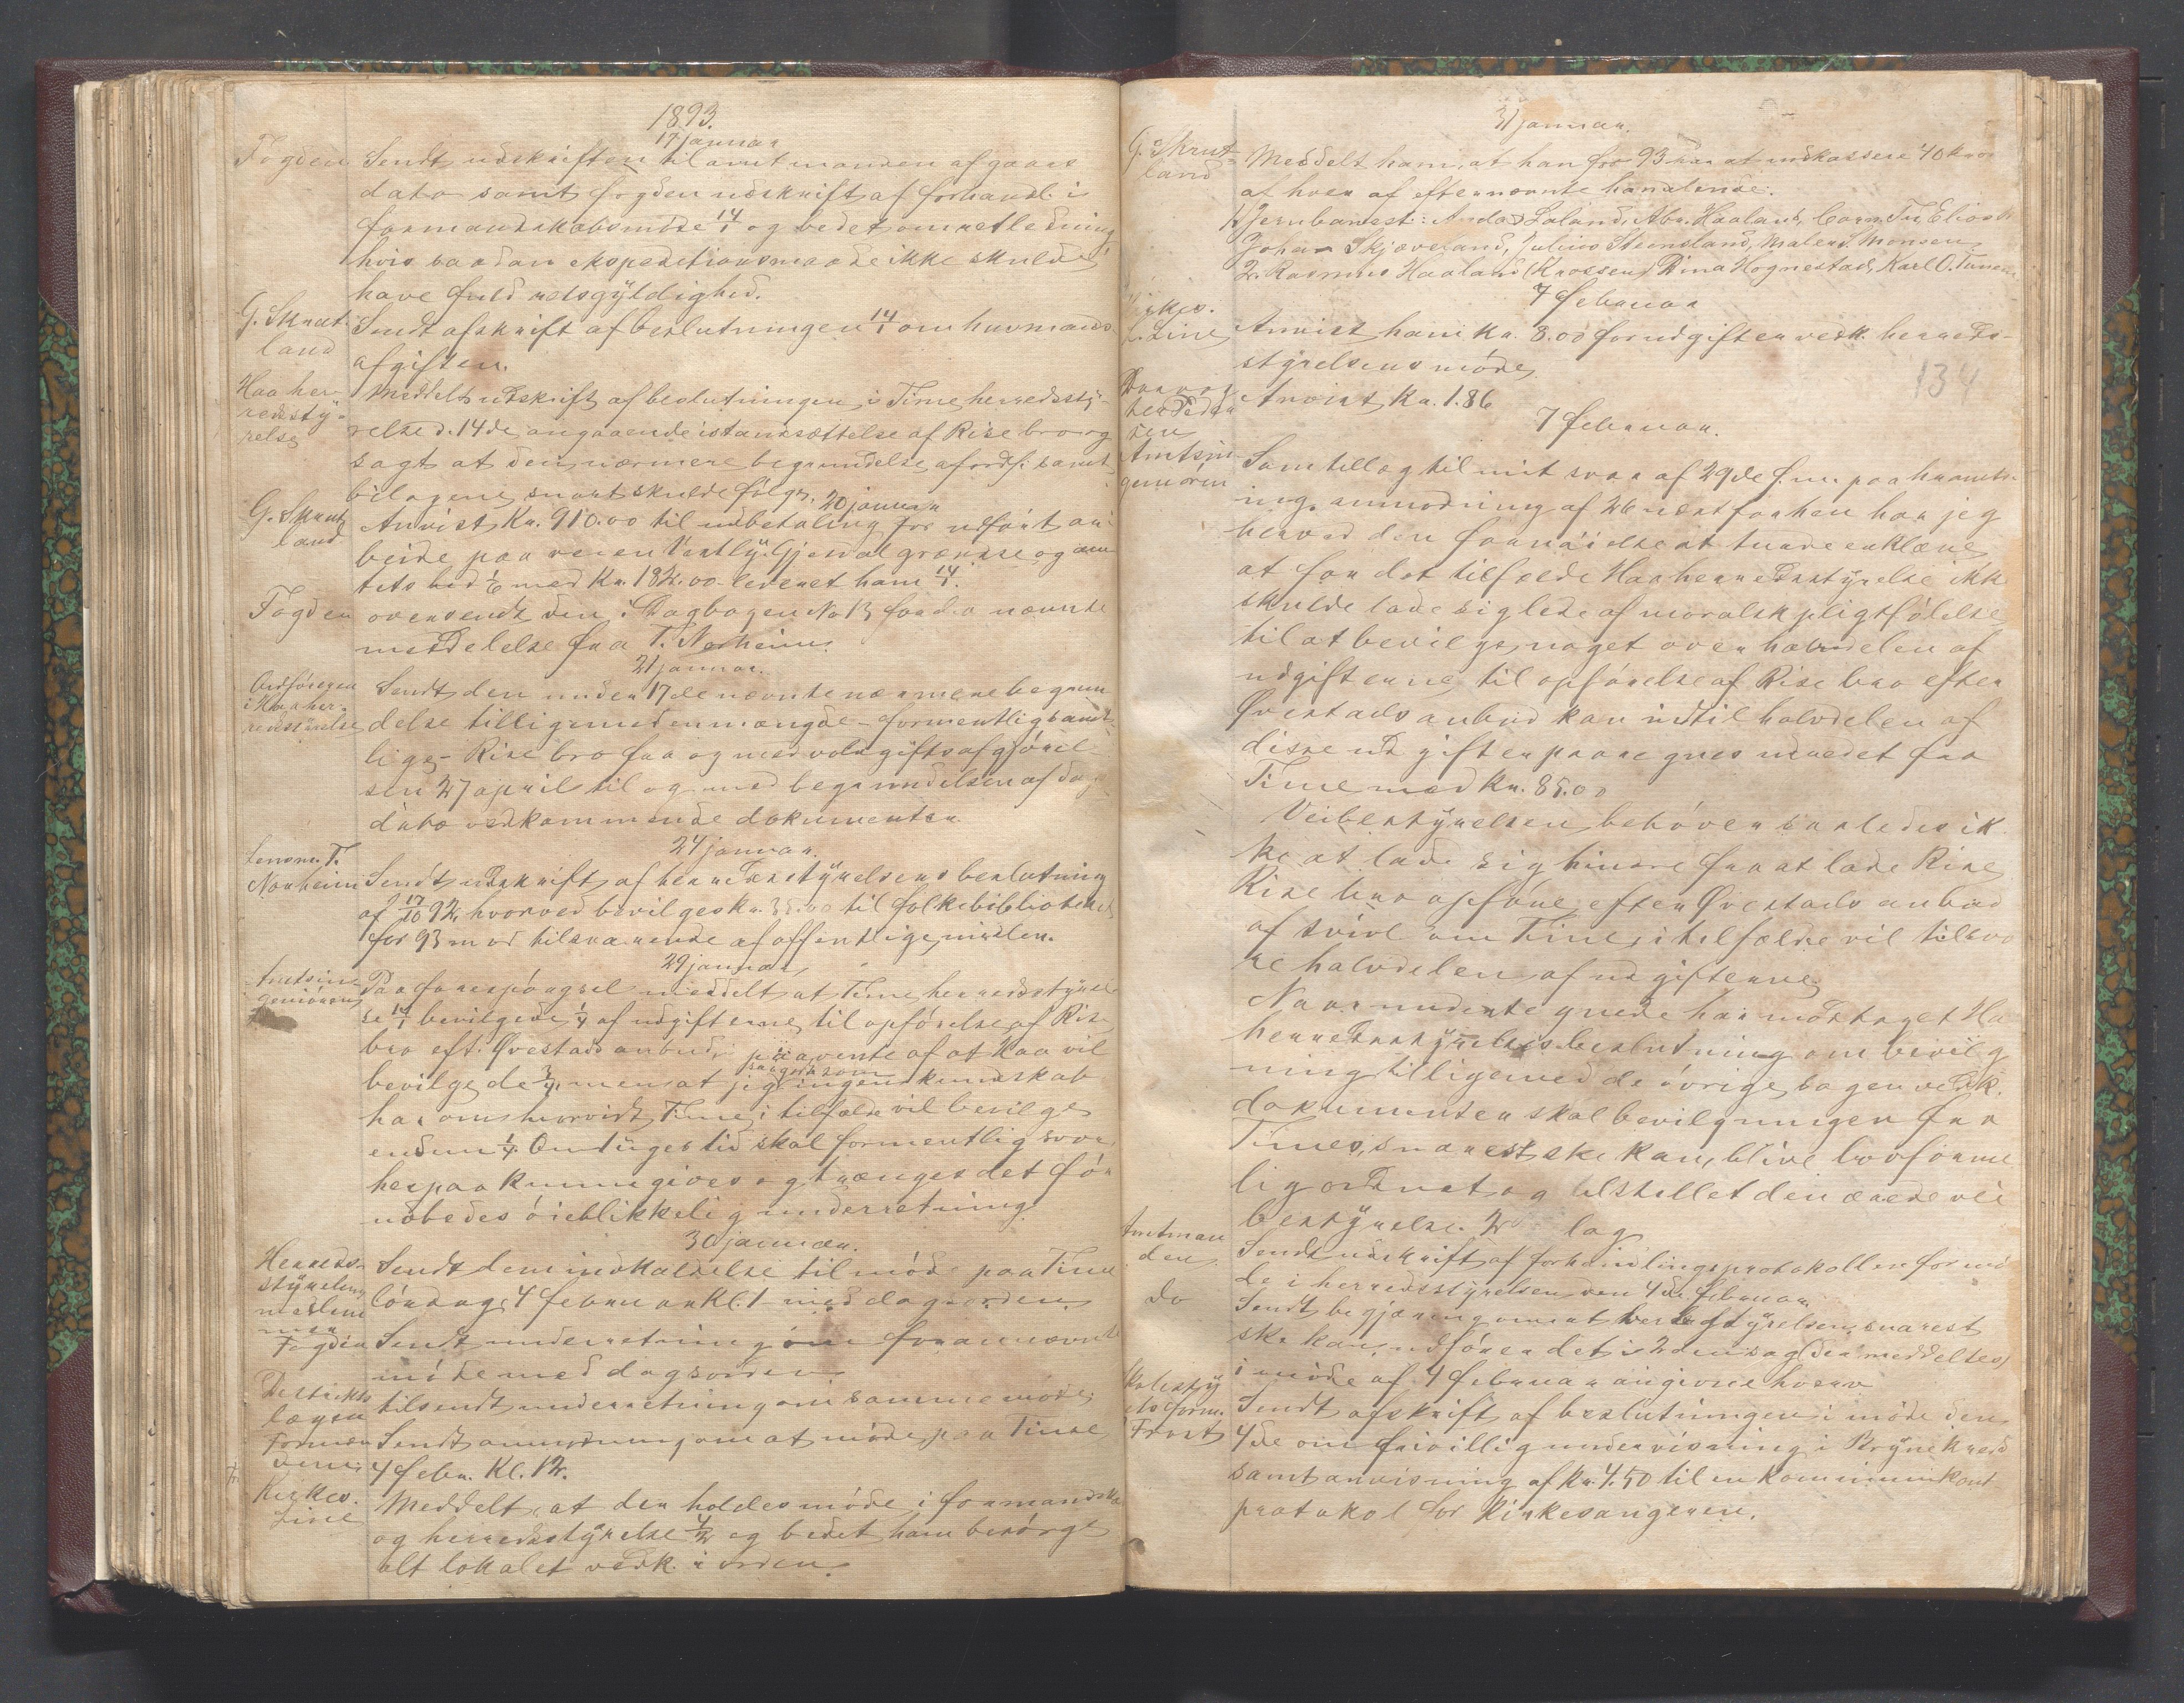 1893.
17 januar
Fogden Sendt udskriften til amtmanden af gaars
dato samt fogden udskrift af forhandl. i
formandskabsmöde 14/1 og bedet om retledning
hvis saadan ekspeditionsmaade ikke skulde
have fuld retsgyldighed.
G. Skrut- Sendt afskrift af beslutningen 14/1 om husmands-
land afgiften.
Haa her- Meddelt udskrift af beslutningen i Time herredssty-
redssty- relse d. 14de angaaende istandsættelse af Rise bro og
relse sagt at den nærmere begrundelse af ordf. samt
bilagene snart skulde följe.
20 januar
G. Skrut- Anvist Kr. 910.00 til udbetaling for udfört ar-
land beide paa veien Vestly-Gjesdal grænse og am
tets bid 1/6 med Kr. 182.00 leveret ham 14/1.
Fogden oversendt den i Dagbogen No 13 for d.a. nævnte
meddelelse fra T. Norheim.
21 januar.
Ordföreren Sendt den under 17de nævnte nærmere begrun
i Haa her- delse tilligemed en mængde - formentlig samt-
redsstyrelse lige - Rise bro fra og med voldgiftsafgjörel-
sen 27 april til og med begrundelsen af dags
dato vedkommende dokumenter.
24 januar.
Lensm. T. Sendt udskrift af herredsstyrelsens beslutning
Norheim af 17/10 92, hvorved bevilges Kr. 35.00 til folkebibliotheket
for 93 mod tilsvarende af offentlige midler.
29 januar
Amtsin- Paa forespörgsel meddelt at Time herredsstyrel-
geniören se 14/1 bevilgede 1/4 af udgifterne til opförelse af Rise
bro eft. Qvestads anbud i paavente af at Haa vil
bevilge de 3/4, men at jeg saagodtsom ingen kundskab
har om hvorvidt Time i tilfælde vil bevilge
endnu 1/4. Om tuges tid skal formentlig svar
herpaa kunne gives og trænges det för
udbedes öieblikkelig underretning.
30 januar.
Herreds- Sendt dem indkaldelse til möde paa Time
styrelsens löndag 4 februar Kl. 1 med dagsorden.
medlem
mer
Fogden Sendt underretning om forannævnte
möde med dagsorden.
Distrikts tilsendt underretning om samme möde
lægen
Formæn Sendt anmodning om at möde paa Time
dene 4 febr. Kl. 12.
Kirkes. Meddelt, at der holdes möde i formandska
Line og herredsstyrelse 4/2 og bedet ham besörge
alt lokalet vedk. i orden.
31 januar.
G. Skrut- Meddelt ham, at han for 93 har at indkassere 40 kroner
land af hver af efternævnte handlende:
1. Jernbanest: Andas Laland, Abr. Haaland, Corn. Tu, Elias
Johan Skjæveland, Julius Steensland, Malene Monsen
2. Rasmus Haaland (Krossen) Dina Hognestad, Karl O. Tunem
7 februar
Kirkes. Anvist ham Kr. 8.00 for udgifter vedk. herreds-
Line styrelsens möde
134
Anvist Kr. 1.86
7 februar.
Amtsin- Som tillæg til mit svar af 29de f.m. paa hr. amts-
geniören ing. anmodning af 26 næstforhen har jeg
herved den fornöielse at turde erklære,
at for det tilfælde Haa herredsstyrelse ikke
skulde lade sig lede af moralsk pligtfölelse
til at bevilge noget over halvdelen af
udgifterne til opförelse af Rise bro efter
Qvestads anbud kan indtil halvdelen af
disse udgifter paaregnes udredet fra
Time med Kr. 85.00
Veibestyrelsen behöver saaledes ik
ke at lade sig hindre fra at lade Rise
Rise bro opföre efter Qvestads anbud
af tvivl om Time i tilfælde vil tilsva
re halvdelen af udgifterne.
Naar undertegnede har modtaget Haa
herredsstyrelses beslutning om bevilg
ning tilligemed de övrige sagen vedk.
dokumenter skal bevilgningen fra
Time, snarest ske kan, blive lovformе
lig ordnet og tilstillet den ærede vei
bestyrelse.
Amtman Sendt udskrift af forhandlingsprotokollen for mö
den de i herredsstyrelsen den 4de februar.
Do Sendt begjæring om at veibestyrelsen snarest
ske kan, udförer det i 2den sag (der meddeltes)
i möde af 4 februar angivne hverv
Skolesty Sendt afskrift af beslutningen i möde den
rets form. 4de om frivillig undervisning i Bryne kreds
Frost samt anvisning af Kr. 4.50 til en kommunikant
protokol for Kirkesangeren.